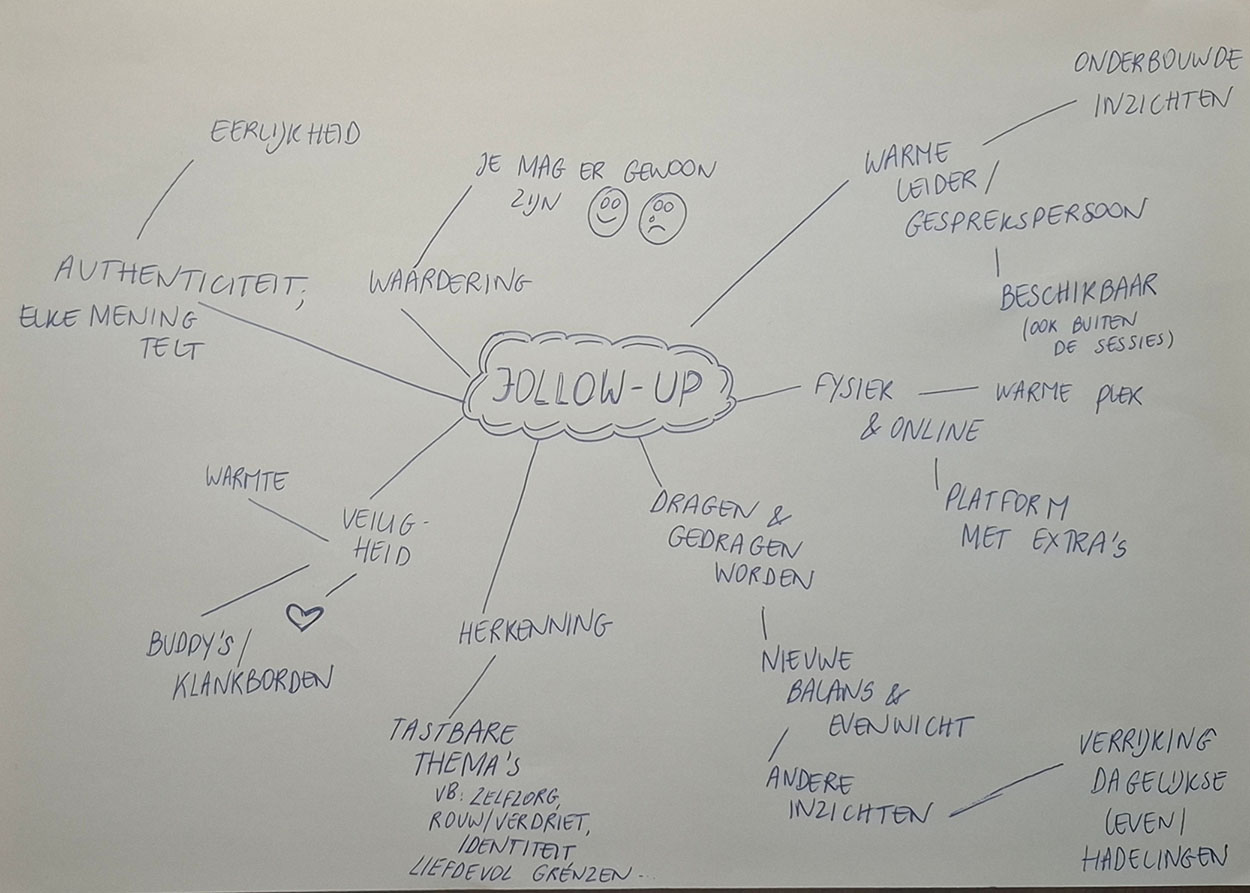 FOLLOW-UP
EERLIJKHEID
AUTHENTICITEIT,
ELKE MENING
TELT
JE MAG ER GEWOON
ZIJN
WAARDERING
ONDERBOUWDE
INZICHTEN
WARME
LEIDER/
GESPREKSPERSOON
BESCHIKBAAR
(OOK BUITEN
DE SESSIES)
FYSIEK
& ONLINE
WARME PLEK
PLATFORM
MET EXTRA'S
DRAGEN &
GEDRAGEN
WORDEN
NIEUWE
BALANS &
EVENWICHT
ANDERE
INZICHTEN
VERRIJKING
DAGELIJKSE
LEVEN/
HADELINGEN
HERKENNING
TASTBARE
THEMA'S
VB: ZELFZORG,
ROUW/VERDRIET,
IDENTITEIT
LIEFDEVOL GRENZEN...
WARMTE
VEILIG-
HEID
BUDDY'S/
KLANKBORDEN